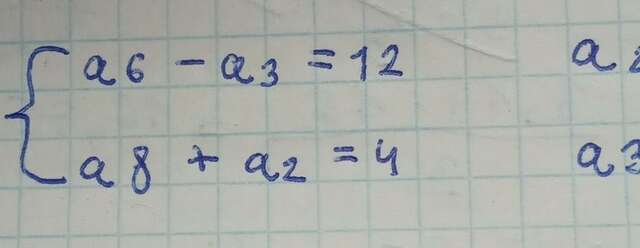 a6 - a3 = 12 a
a8 + a2 = 4 a3